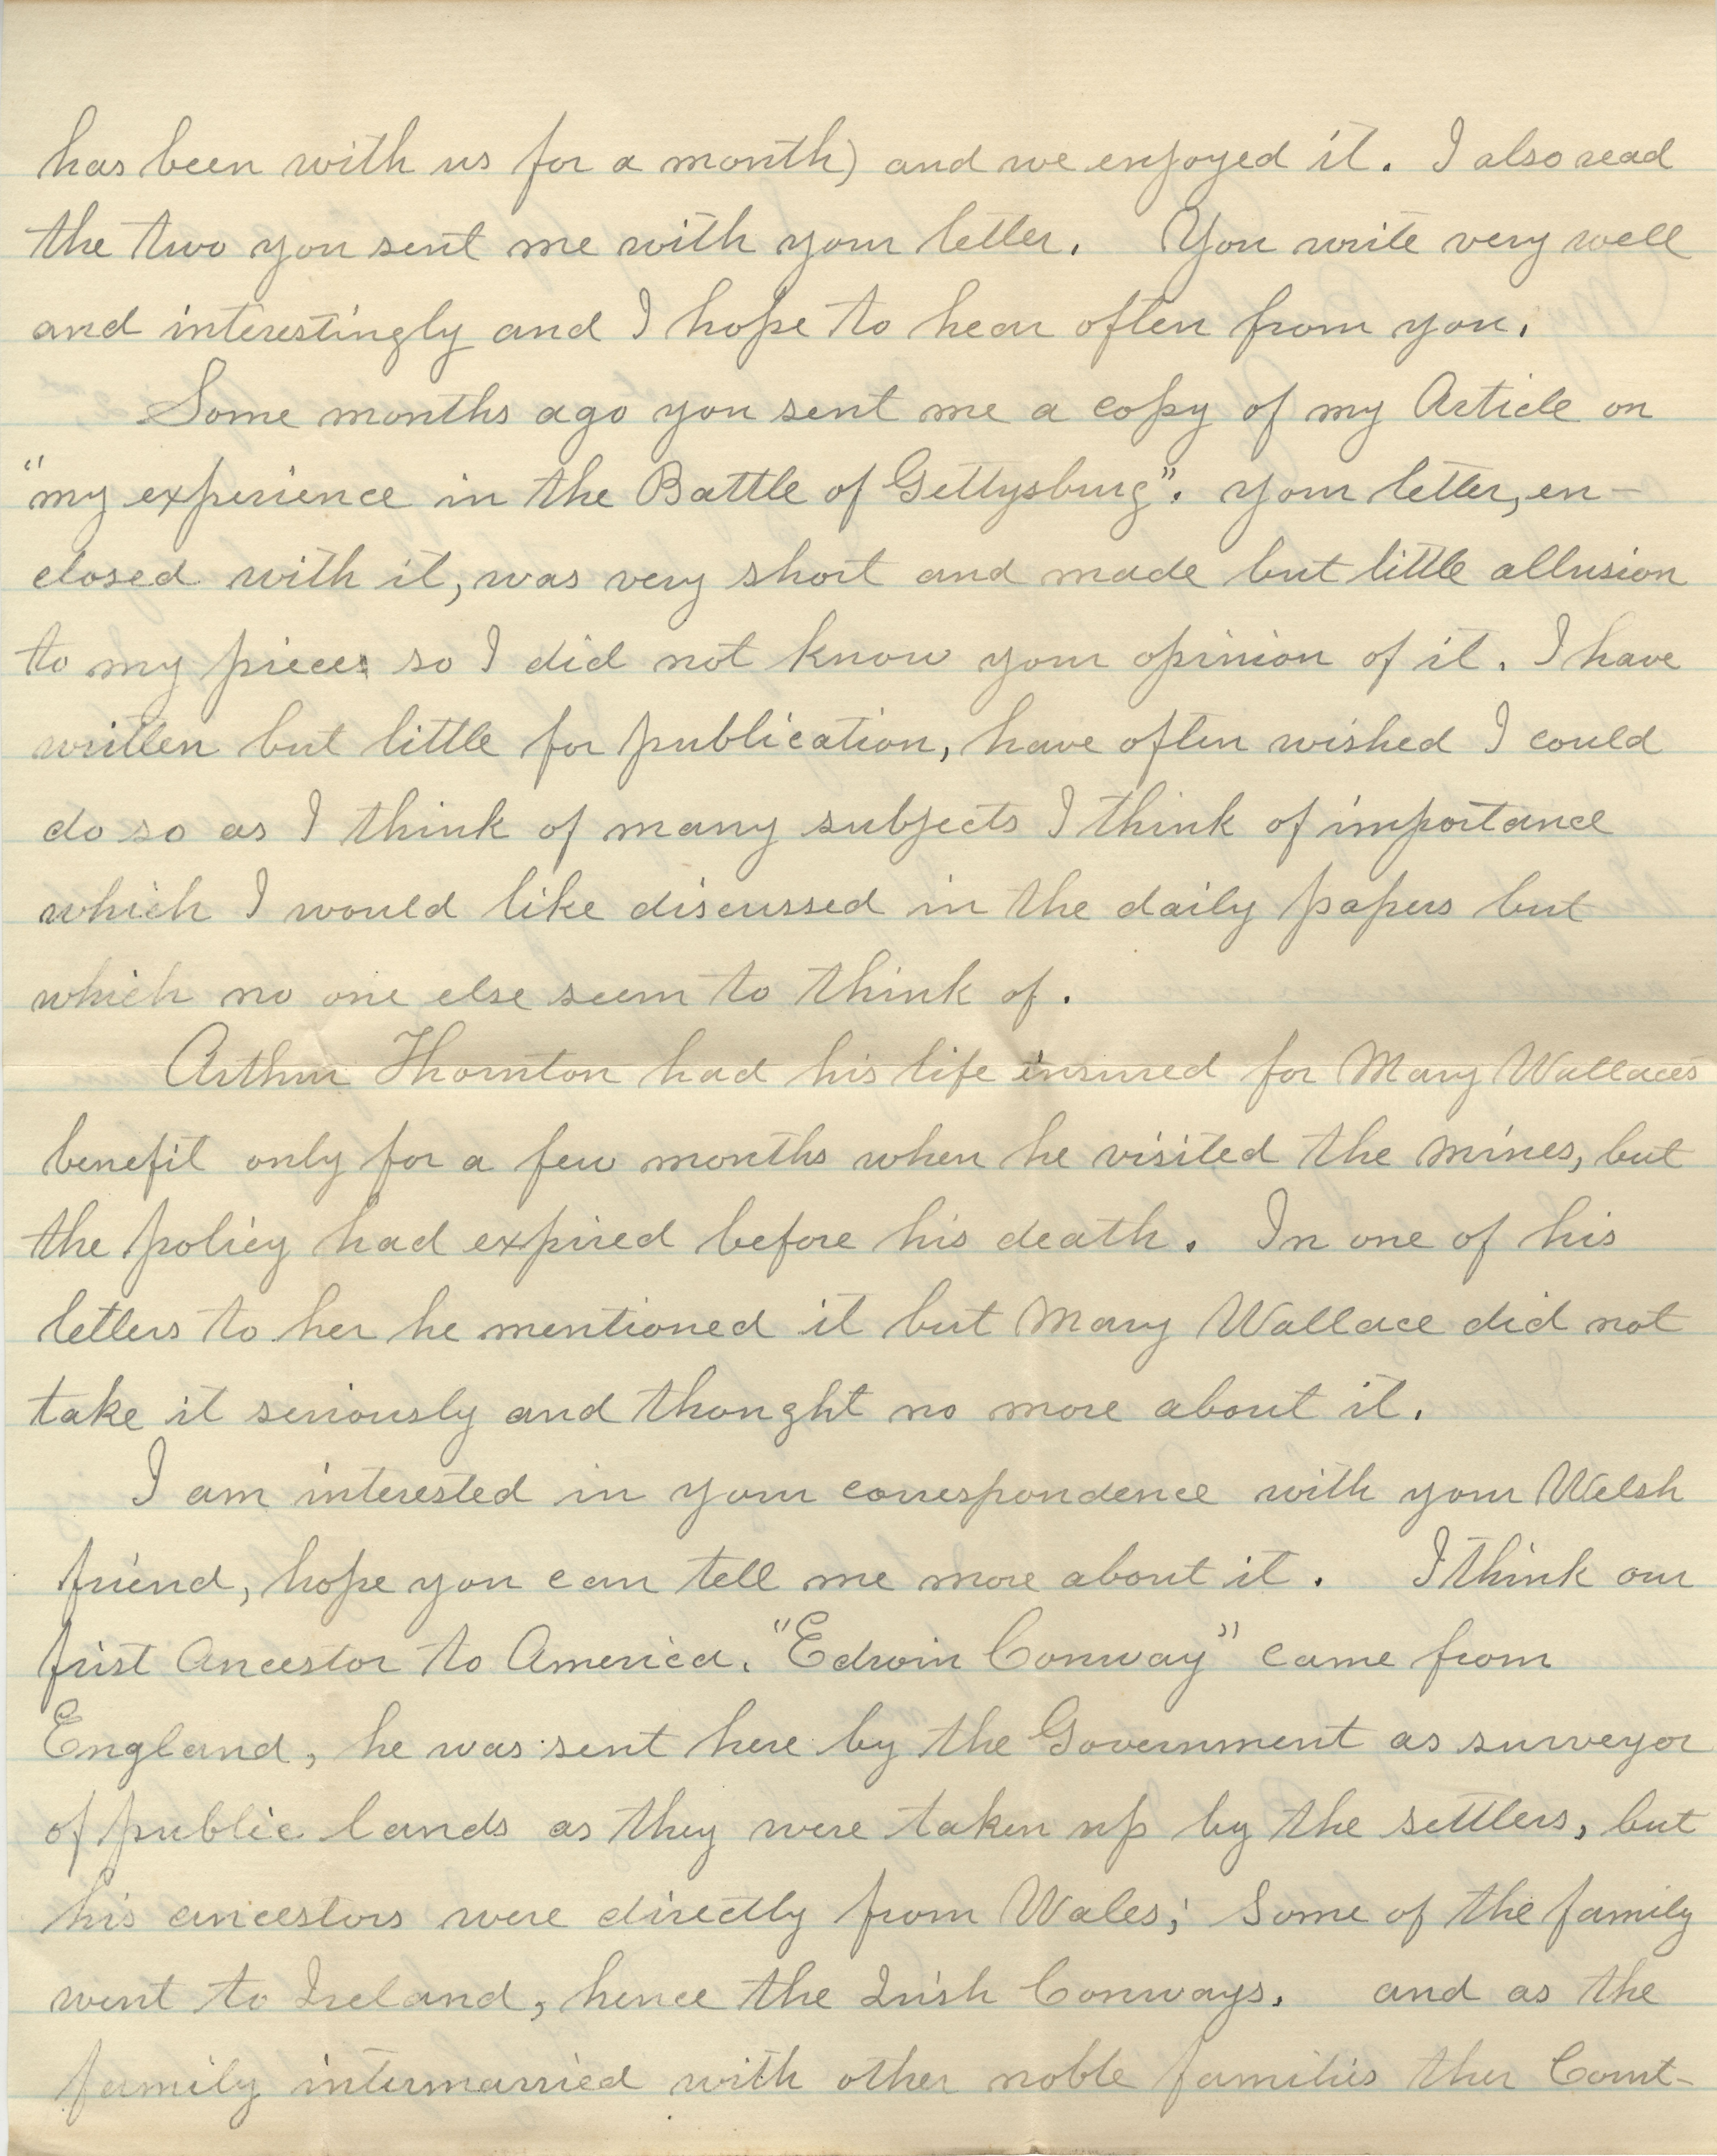 has been with us for a month) and we enjoyed it. I also read
the two you sent me with your letter. You write very well
and interestingly and I hope to hear often from you.
Some months ago you sent me a copy of my Article on
"my experience in the Battle of Gettysburg". your letter, en-
closed with it, was very short and made but little allusion
to my pieces so I did not know your opinion of it. I have
written but little for publication, have often wished I could
do so as I think of many subjects I think of importance
which I would like discussed in the daily papers but
which no one else seem to think of.
Arthur Thornton had his life insured for Mary Wallace's
benefit only for a few months when he visited the mines, but
the policy had expired before his death. In one of his
letters to her he mentioned it but Mary Wallace did not
take it seriously and thought no more about it.
I am interested in your correspondence with your Welsh
friend, hope you can tell me more about it. I think our
first Ancestor to America. "Edwin Conway" came from
England, he was sent here by the Government as surveyor
of public lands as they were taken up by the settlers, but
his ancestors were directly from Wales; Some of the family
went to Ireland, hence the Irish Conways. and as the
family intermarried with other noble families ther Count-